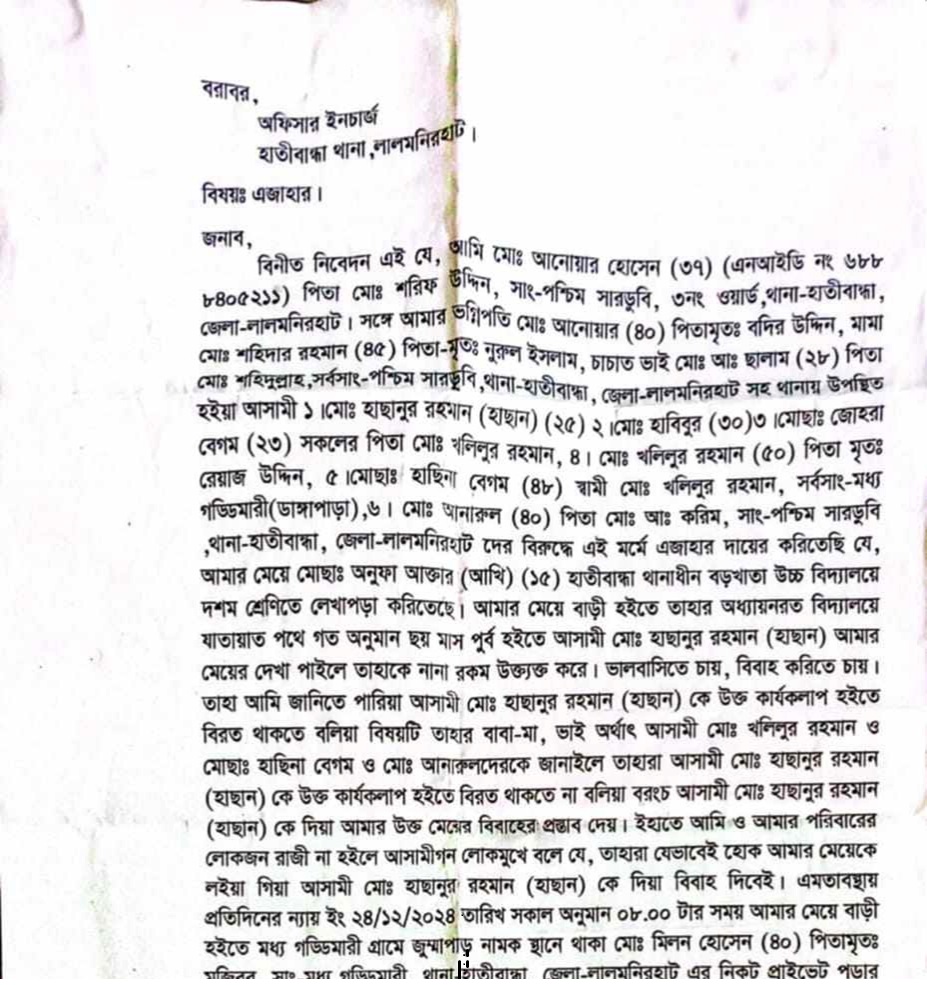 বরাবর,
অফিসার ইনচার্জ
হাতীবান্ধা থানা,লালমনিরহাট।
বিষয়ঃ এজাহার।
জনাব,
বিনীত নিবেদন এই যে, আমি মোঃ আনোয়ার হোসেন (৩৭) (এনআইডি নং ৬৮৮
৮৪০৫২১১) পিতা মোঃ শরিফ উদ্দিন, সাং-পশ্চিম সারডুবি, ৩নং ওয়ার্ড,থানা-হাতীবান্ধা,
জেলা-লালমনিরহাট। সঙ্গে আমার ভগ্নিপতি মোঃ আনোয়ার (৪০) পিতামৃতঃ বদির উদ্দিন, মামা
মোঃ শহিদার রহমান (৪৫) পিতা-মৃতঃ নুরুল ইসলাম, চাচাত ভাই মোঃ আঃ ছালাম (২৮) পিতা
মোঃ শহিদুল্লাহ,সর্বসাং-পশ্চিম সারডুবি,থানা-হাতীবান্ধা, জেলা-লালমনিরহাট সহ থানায় উপস্থিত
হইয়া আসামী ১।মোঃ হাছানুর রহমান (হাছান) (২৫) ২।মোঃ হাবিবুর (৩০)৩।মোছাঃ জোহরা
বেগম (২৩) সকলের পিতা মোঃ খলিলুর রহমান, ৪। মোঃ খলিলুর রহমান (৫০) পিতা মৃতঃ
রেয়াজ উদ্দিন, ৫।মোছাঃ হাছিনা বেগম (৪৮) স্বামী মোঃ খলিলুর রহমান, সর্বসাং-মধ্য
গড্ডিমারী(ডাঙ্গাপাড়া),৬। মোঃ আনারুল (৪০) পিতা মোঃ আঃ করিম, সাং-পশ্চিম সারডুবি
,থানা-হাতীবান্ধা, জেলা-লালমনিরহাট দের বিরুদ্ধে এই মর্মে এজাহার দায়ের করিতেছি যে,
আমার মেয়ে মোছাঃ অনুফা আক্তার (আখি) (১৫) হাতীবান্ধা থানাধীন বড়খাতা উচ্চ বিদ্যালয়ে
দশম শ্রেণিতে লেখাপড়া করিতেছে। আমার মেয়ে বাড়ী হইতে তাহার অধ্যায়নরত বিদ্যালয়ে
যাতায়াত পথে গত অনুমান ছয় মাস পূর্ব হইতে আসামী মোঃ হাছানুর রহমান (হাছান) আমার
মেয়ের দেখা পাইলে তাহাকে নানা রকম উত্ত্যক্ত করে। ভালবাসিতে চায়, বিবাহ করিতে চায়।
তাহা আমি জানিতে পারিয়া আসামী মোঃ হাছানুর রহমান (হাছান) কে উক্ত কার্যকলাপ হইতে
বিরত থাকতে বলিয়া বিষয়টি তাহার বাবা-মা, ভাই অর্থাৎ আসামী মোঃ খলিলুর রহমান ও
মোছাঃ হাছিনা বেগম ও মোঃ আনারুলদেরকে জানাইলে তাহারা আসামী মোঃ হাছানুর রহমান
(হাছান) কে উক্ত কার্যকলাপ হইতে বিরত থাকতে না বলিয়া বরংচ আসামী মোঃ হাছানুর রহমান
(হাছান) কে দিয়া আমার উক্ত মেয়ের বিবাহের প্রস্তাব দেয়। ইহাতে আমি ও আমার পরিবারের
লোকজন রাজী না হইলে আসামীগন লোকমুখে বলে যে, তাহারা যেভাবেই হোক আমার মেয়েকে
লইয়া গিয়া আসামী মোঃ হাছানুর রহমান (হাছান) কে দিয়া বিবাহ দিবেই। এমতাবস্থায়
প্রতিদিনের ন্যায় ইং ২৪/১২/২০২৪ তারিখ সকাল অনুমান ০৮.০০ টার সময় আমার মেয়ে বাড়ী
হইতে মধ্য গড্ডিমারী গ্রামে জুম্মাপাড় নামক স্থানে থাকা মোঃ মিলন হোসেন (৪০) পিতামৃতঃ
সাং মধ্য গড্ডিমারী, থানা হাতীবান্ধা, জেলা-লালমনিরহাট এর নিকট প্রাইভেট পড়ার